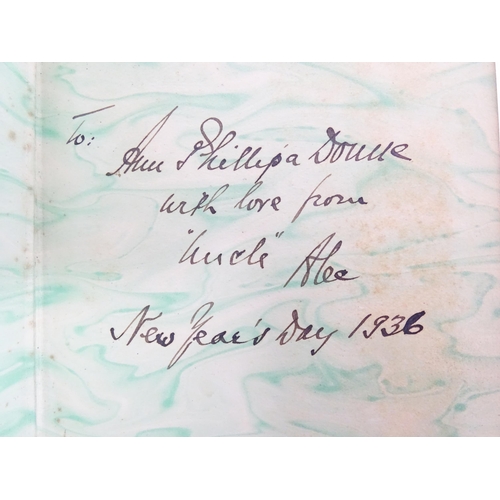 To:
Ann Phillipa Donne
with love from
"Uncle" Alec
New Year's Day 1936